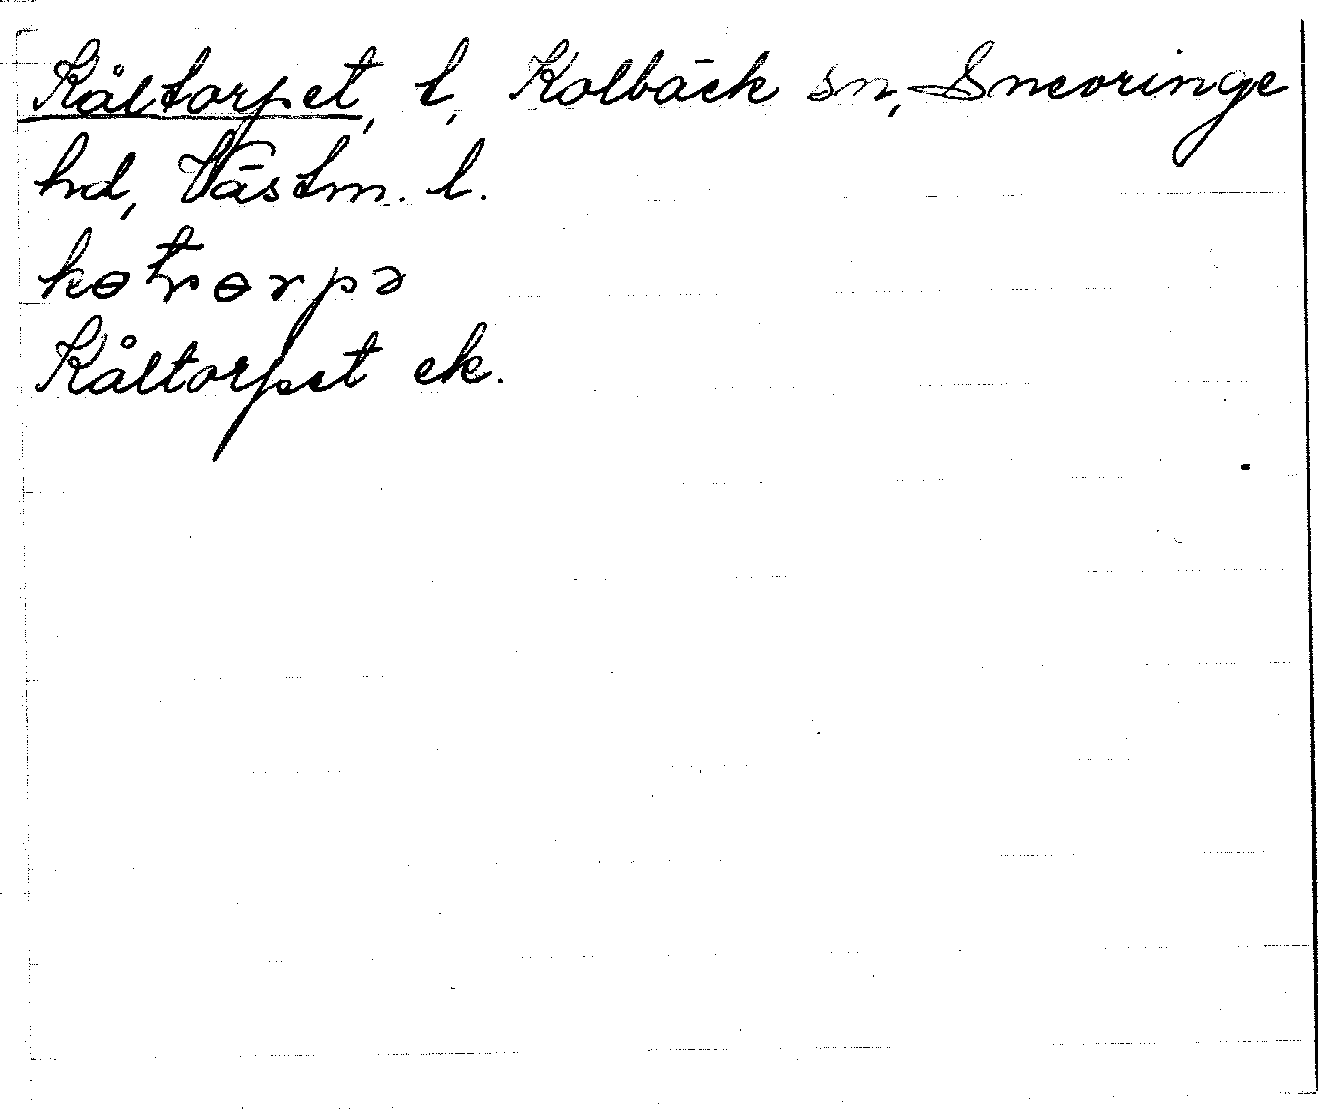 Kåltorpet, l, Kolbäck sn, Snevringe
hd, Västm. l.
kɵtɵrpə
Kåltorpet ek.